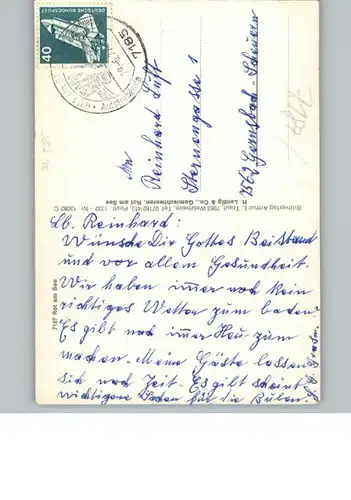 DEUTSCHE BUNDESPOST
40
7185
An
Reinhard Luft
Sternengasse 1
7562 Gernsbach-Scheuern
Bildverlag Arthur F. Traut, 7063 Welzheim, Tel. 07182/412, Postf. 1332 - Nr. 13082 C
H. Leidig & Co., Gemischtwaren, Rot am See
7187 Rot am See
Lb. Reinhard:
Wünsche Dir Gottes Beistand
und vor allem Gesundheit.
Wir haben immer noch kein
richtiges Wetter zum baden.
Es gibt noch immer Heu zum
machen. Meine Gäste lassen
sich noch Zeit. Es gibt scheint
wichtigere Sachen für die Buben.